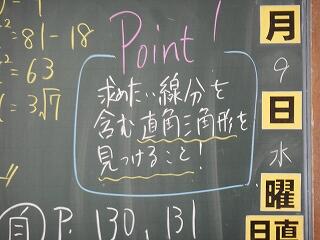 ² = 81 - 18
² = 63
= 3√7
Point!
求めたい線分を
含む直角三角形を
見つけること!
自 P. 130, 131
月
9
日
水
曜
日直